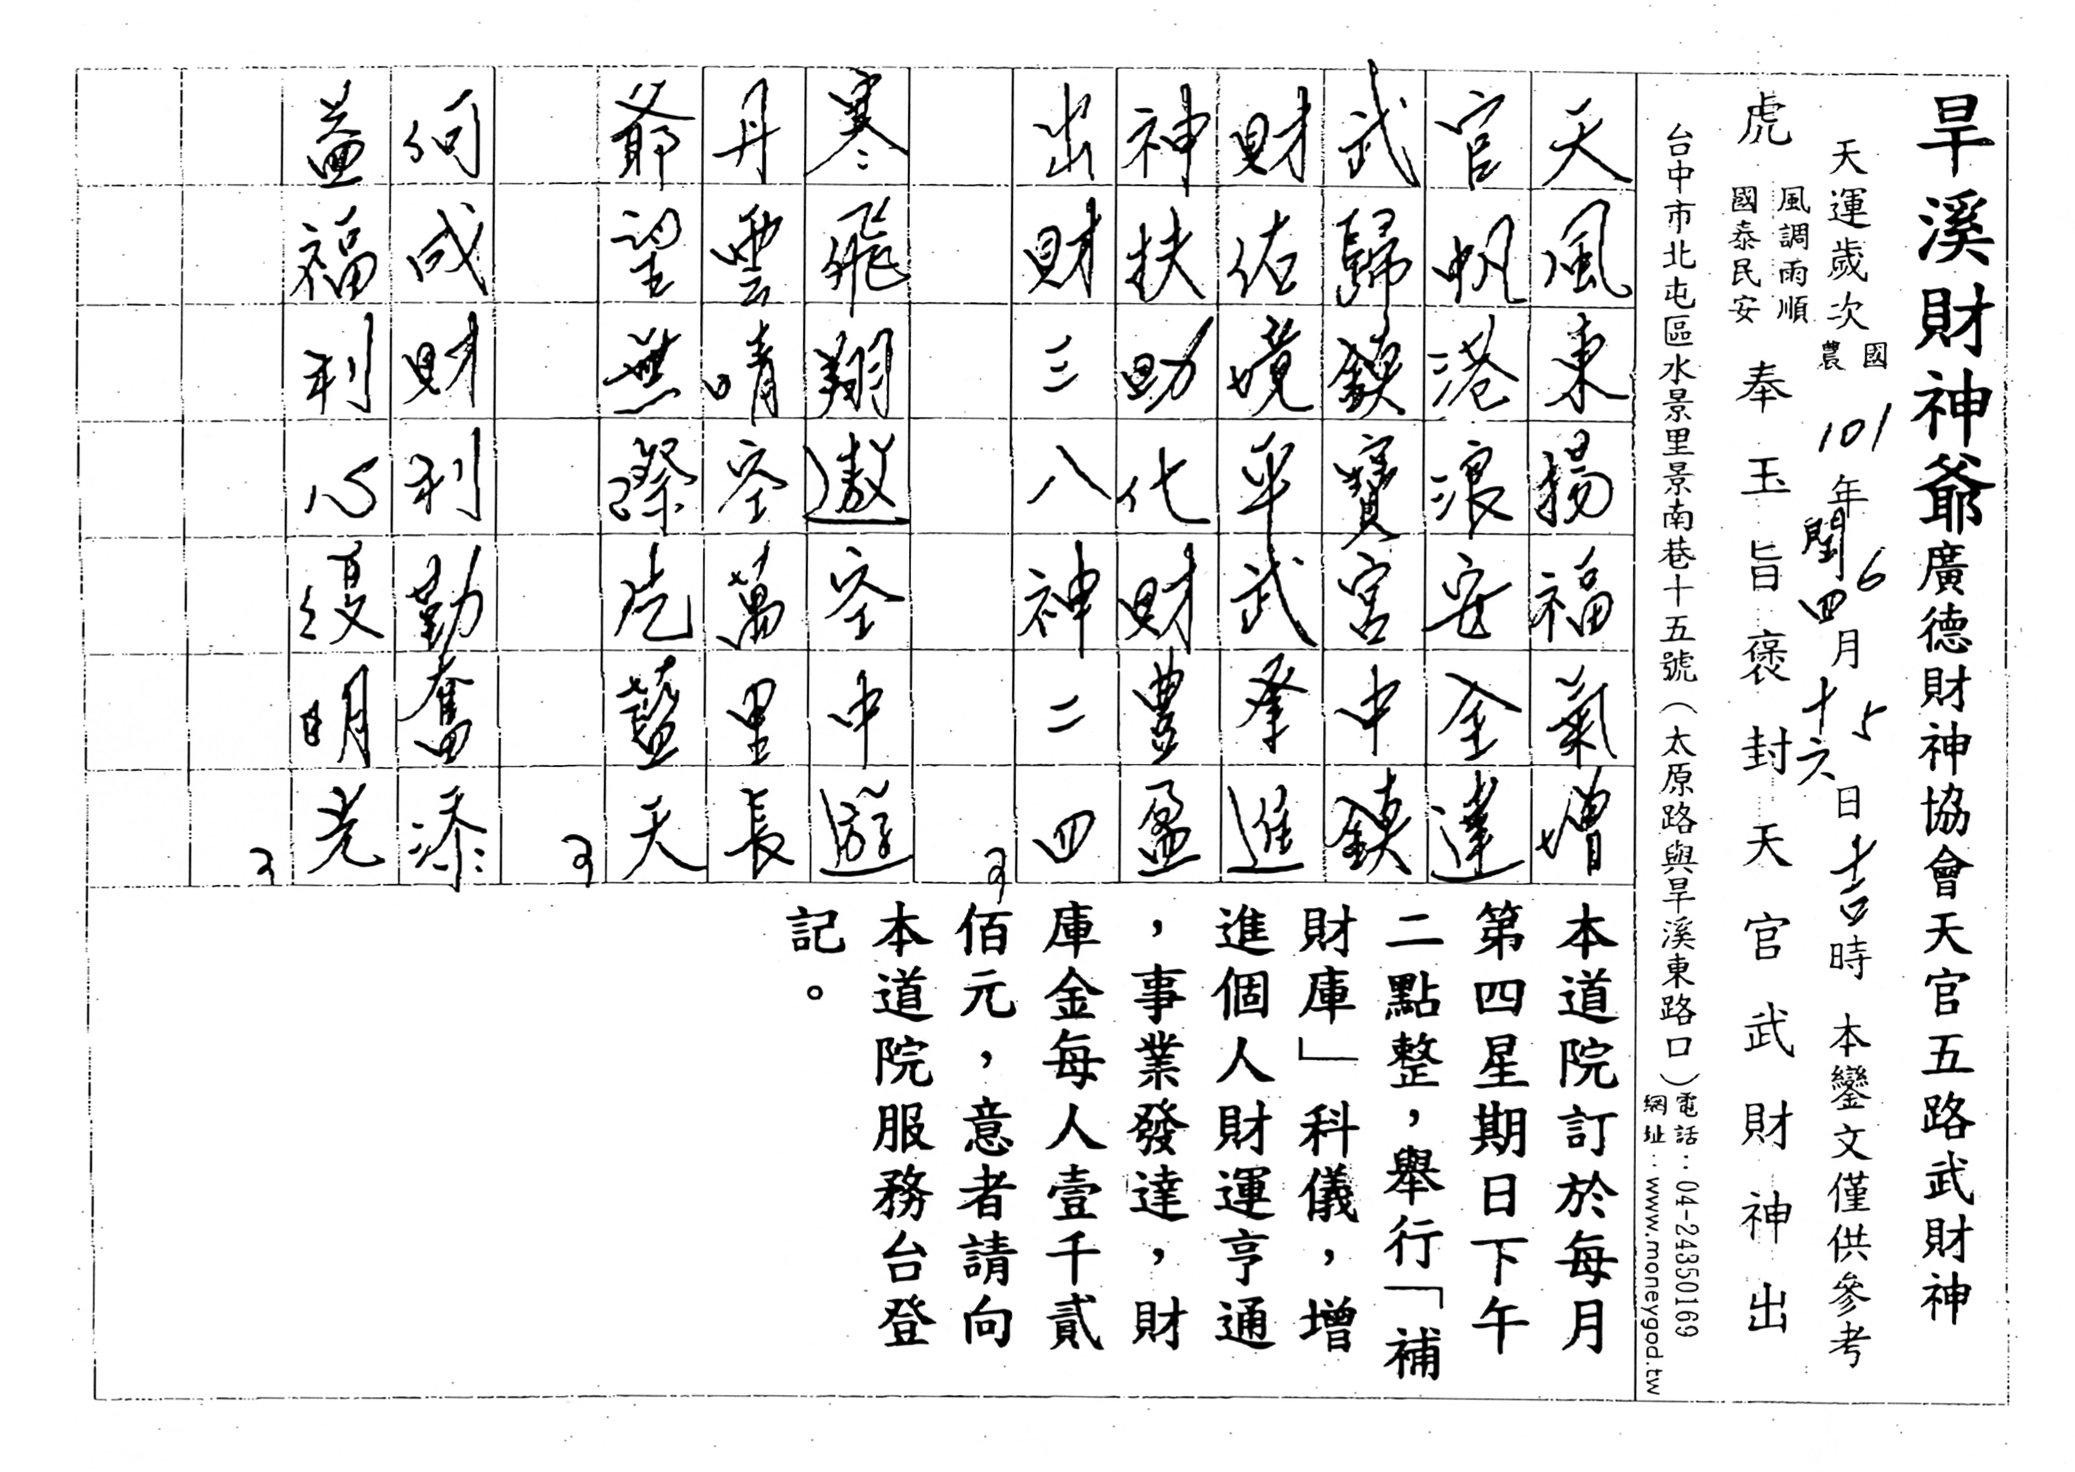 旱溪財神爺廣德財神協會天官五路武財神
天運歲次 國農 101年 6 閏四月 15 十六日 十吉時 本鑾文僅供參考
虎 風調雨順 國泰民安 奉玉旨褒封天官武財神出
台中市北屯區水景里景南巷十五號(太原路與旱溪東路口)電話:04-24350169
網址:www.moneygod.tw
天風東揚福氣增
官帆港浪安全達
武歸鎮寶宮中鎮
財佑境平武峯進
神扶助化財豐盈
出財三八神二四
寒飛翔遨空中遊
丹雲晴空萬里長
爺望無際比藍天
何成財利勤奮添
益福利心復明光
本道院訂於每月
第四星期日下午
二點整,舉行「補
財庫」科儀,增
進個人財運亨通
,事業發達,財
庫金每人壹千貳
佰元,意者請向
本道院服務台登
記。